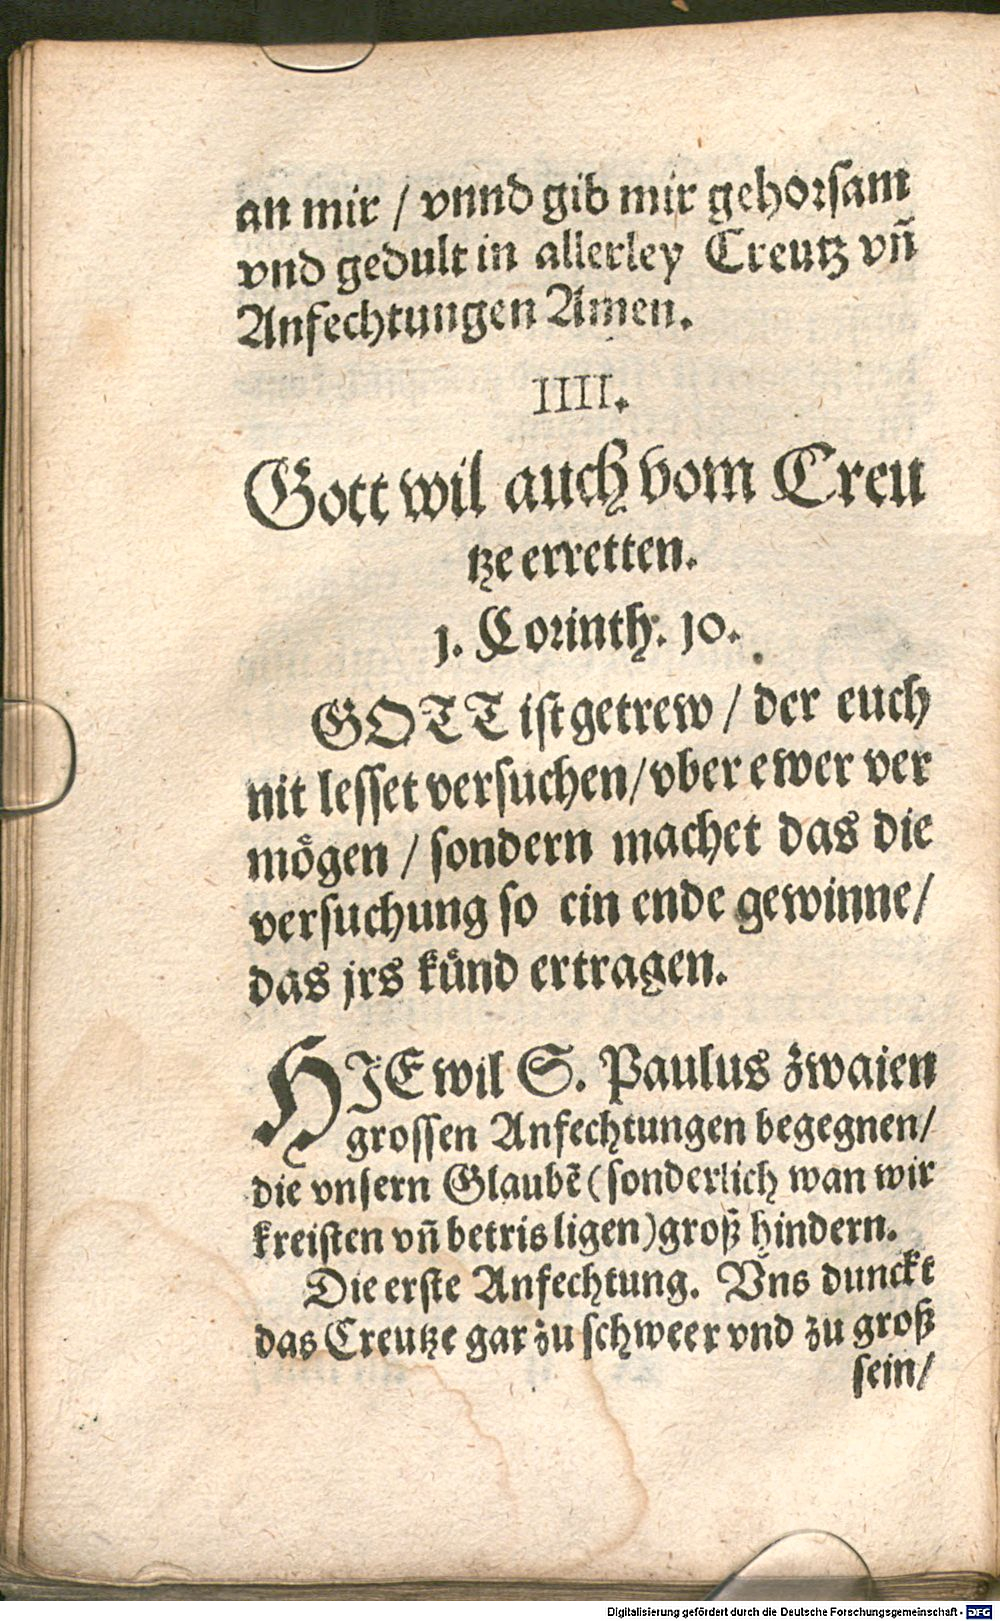 an mir / vnnd gib mir gehorsam
vnd gedult in allerley Creutz vñ
Anfechtungen Amen.
IIII.
Gott wil auch vom Creu
tze erretten.
1. Corinth. 10.
GOTT ist getrew / der euch
nit lesset versuchen / vber ewer ver
mögen / sondern machet das die
versuchung so ein ende gewinne /
das jrs künd ertragen.
HIE wil S. Paulus zwaien
grossen Anfechtungen begegnen /
die vnsern Glaubẽ (sonderlich wan wir
kreisten vñ betrisligen) groß hindern.
Die erste Anfechtung. Vns dunckt
das Creutze gar zu schweer vnd zu groß
sein /
Digitalisierung gefördert durch die Deutsche Forschungsgemeinschaft - DFG